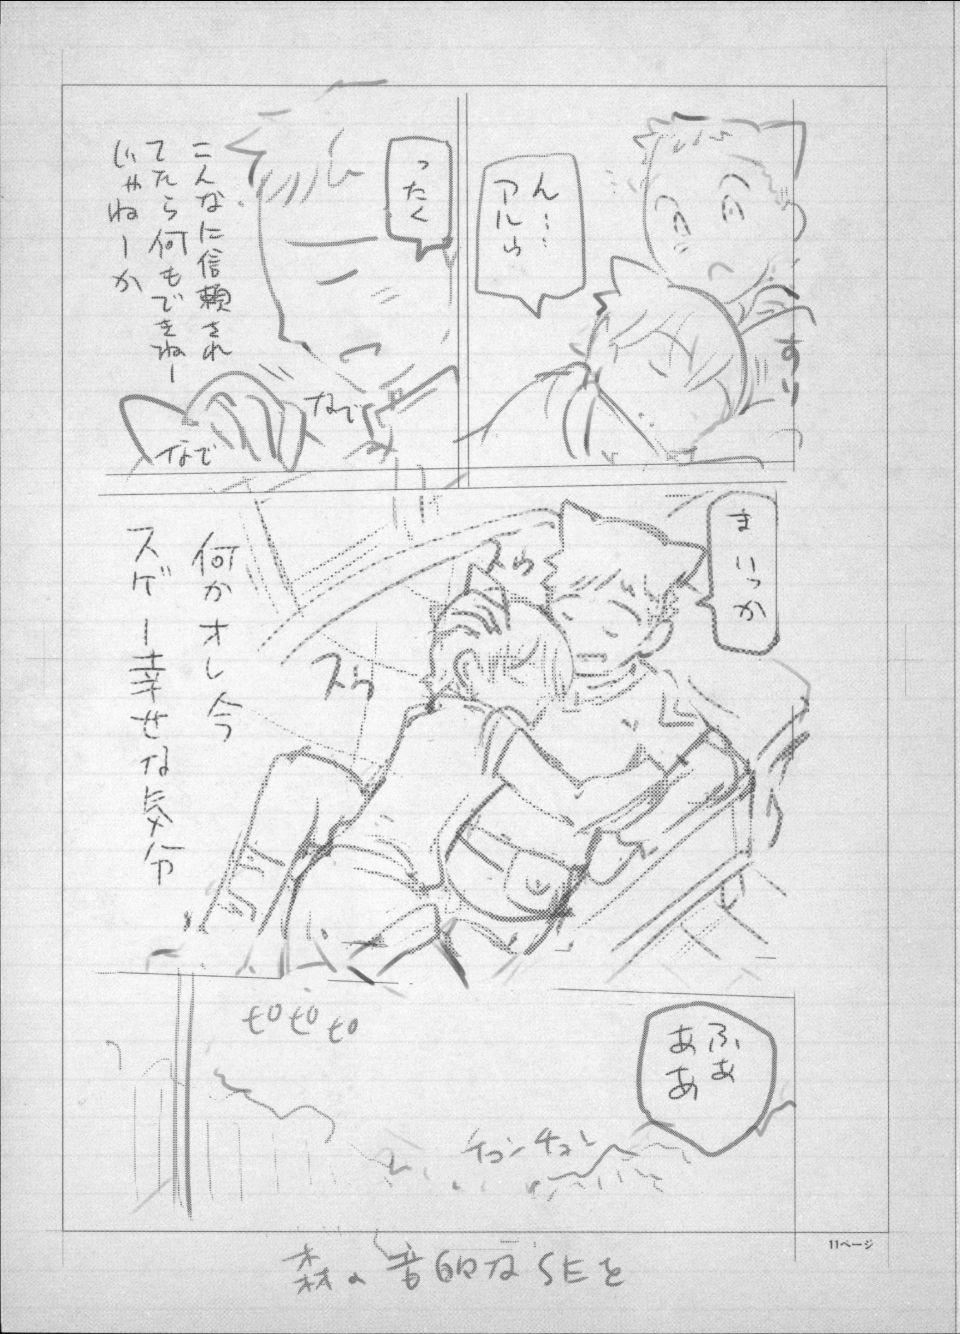 ん…
アルゥ
すり
ったく
こんなに信頼され
てたら何もできねー
じゃねーか
なで
なで
まいっか
スゥ
スゥ
何かオレ今
スゲー幸せな気分
ふぁ
ああ
ピピピ
チュンチュン
森の音的なSEを
11ページ